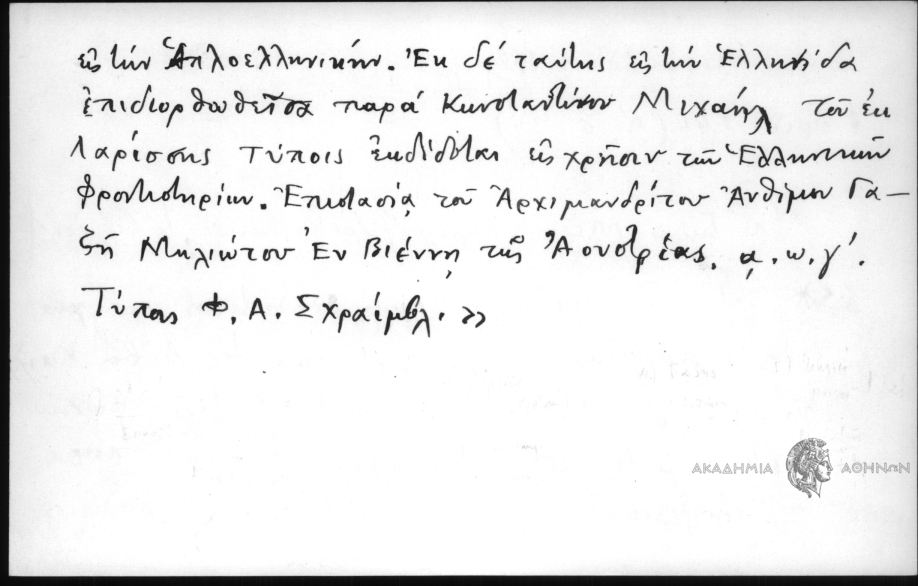 εἰς τὴν Ἁπλοελληνικήν. Ἐκ δέ ταύτης εἰς τὴν Ἑλληνίδα
ἐπιδιορθωθεῖσα παρά Κωνσταντίνου Μιχαήλ τοῦ ἐκ
Λαρίσσης τύποις ἐκδίδοται εἰς χρῆσιν τῶν Ἑλληνικῶν
Φροντιστηρίων. Ἐπιστασίᾳ τοῦ Ἀρχιμανδρίτου Ἀνθίμου Γα-
ζῆ Μηλιώτου Ἐν Βιέννῃ τῆς Ἀουστρίας. ͵α.ω.γ΄.
Τύποις Φ. Α. Σχραίμβλ. »
ΑΚΑΔΗΜΙΑ ΑΘΗΝΩΝ